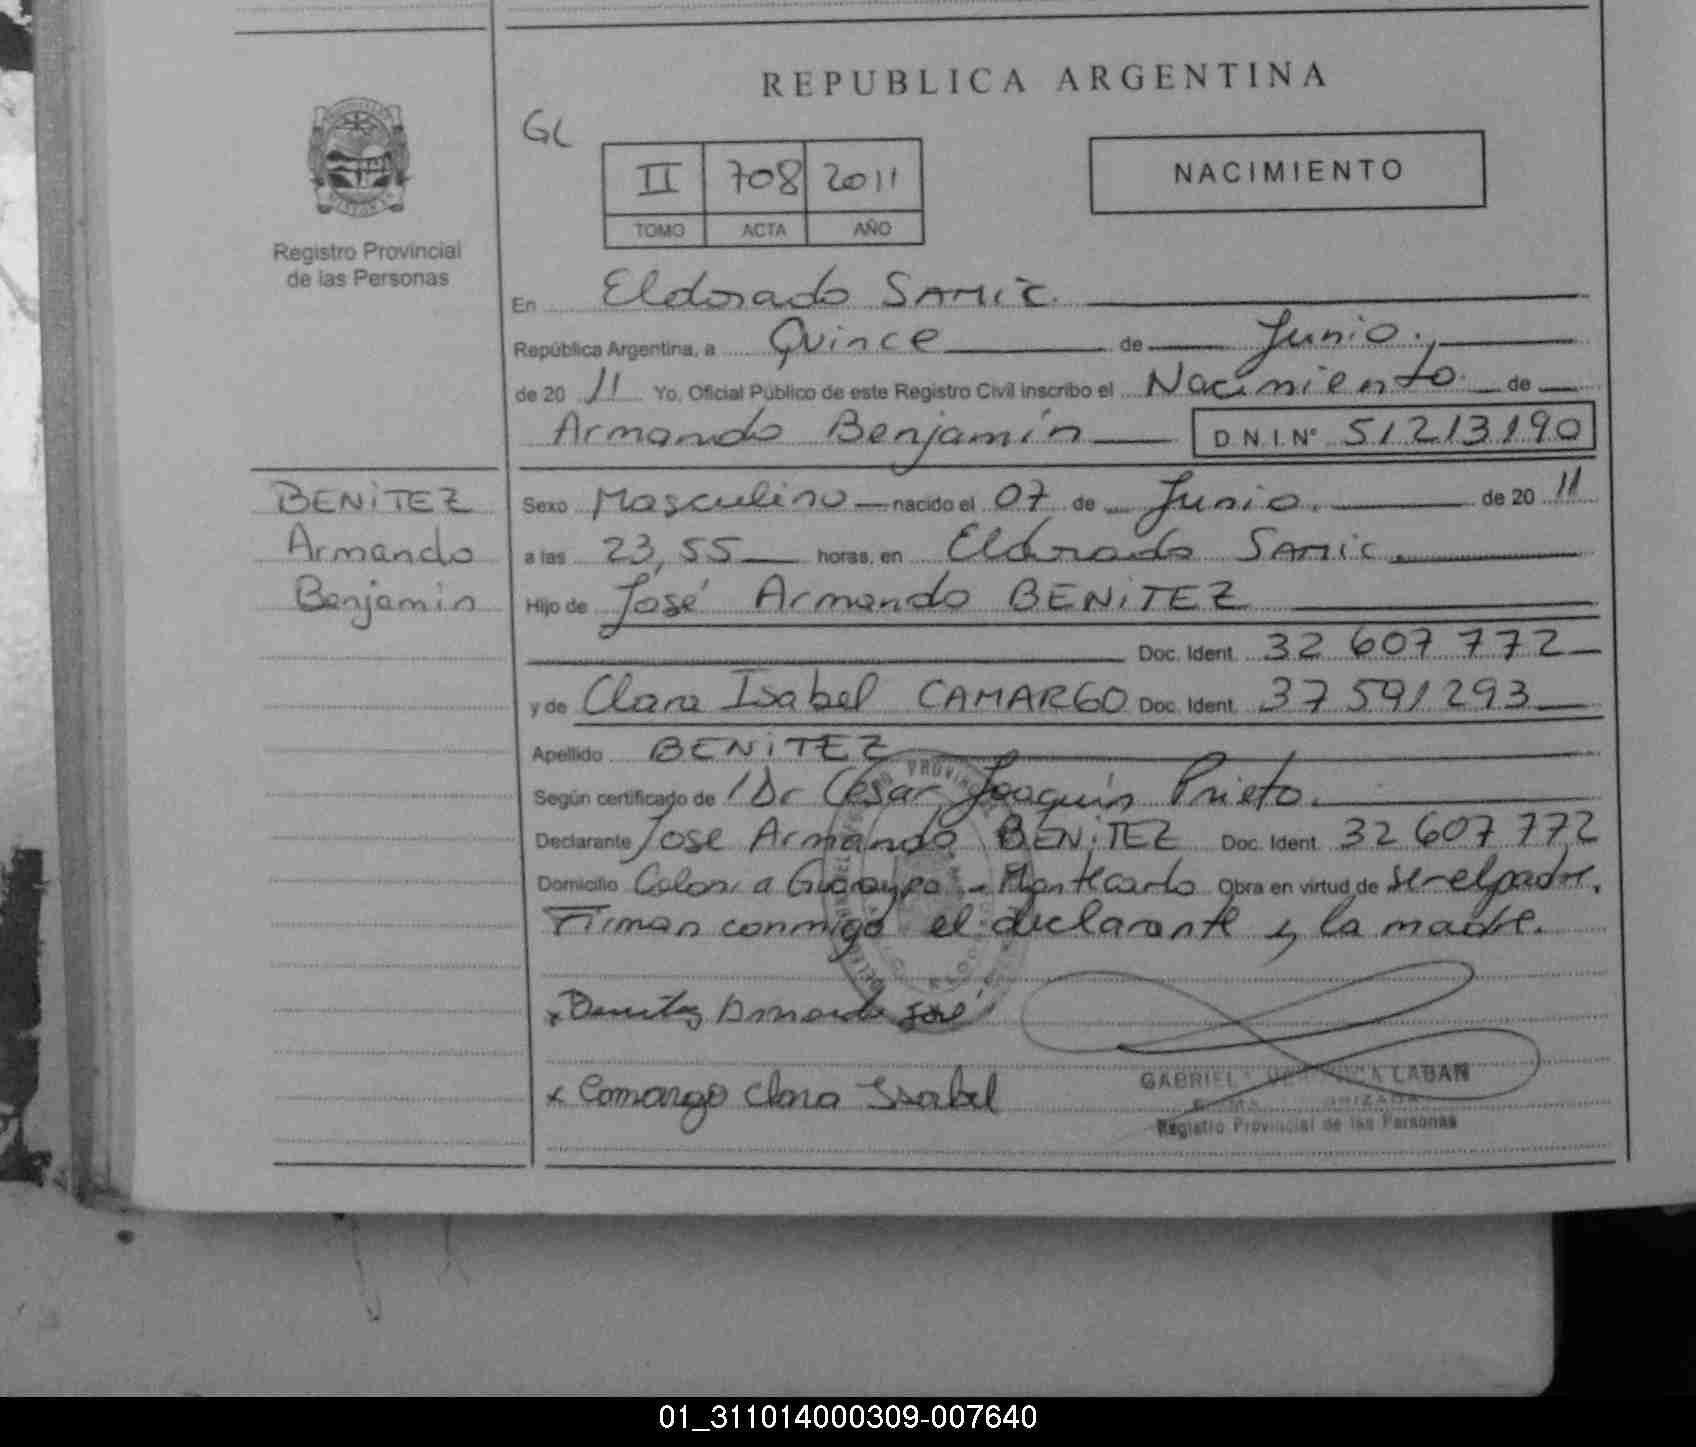 REPUBLICA ARGENTINA
GL
II 708 2011
TOMO ACTA AÑO
NACIMIENTO
Registro Provincial
de las Personas
En Eldorado SAMIC.
República Argentina, a Quince de Junio.,
de 20 11 Yo, Oficial Público de este Registro Civil inscribo el Nacimiento de
Armando Benjamín D.N.I.Nº 51213190
BENITEZ
Armando
Benjamin
Sexo Masculino nacido el 07 de Junio. de 20 11
a las 23,55 horas, en Eldorado SAMIC.
Hijo de José Armando BENITEZ
Doc. Ident. 32 607 772
y de Clara Isabel CAMARGO Doc. Ident. 37 591 293
Apellido BENITEZ
Según certificado de Dr Cesar Joaquín Prieto.
Declarante Jose Armando BENITEZ Doc. Ident. 32 607 772
Domicilio Colonia Guaraypo - Montecarlo Obra en virtud de ser el padre.
Firman conmigo el declarante y la madre.
x Benitez Armando José
x Camargo Clara Isabel
GABRIELA LABAN
Registro Provincial de las Personas
01_311014000309-007640